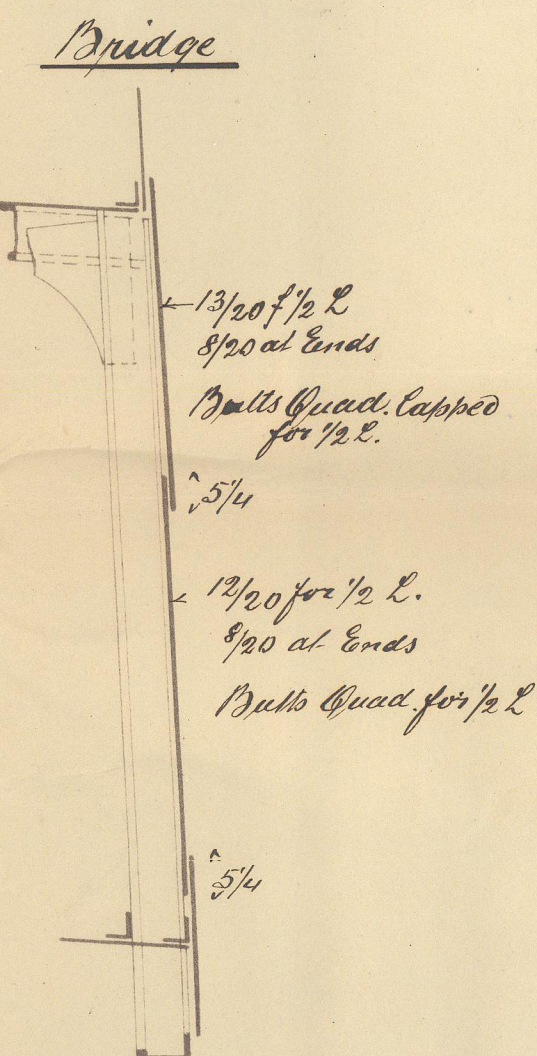 Bridge
13/20 f 1/2 L
8/20 at Ends
Butts Quad. lapped
for 1/2 L.
5 1/4
12/20 for 1/2 L.
8/20 at Ends
Butts Quad. for 1/2 L
5 1/4